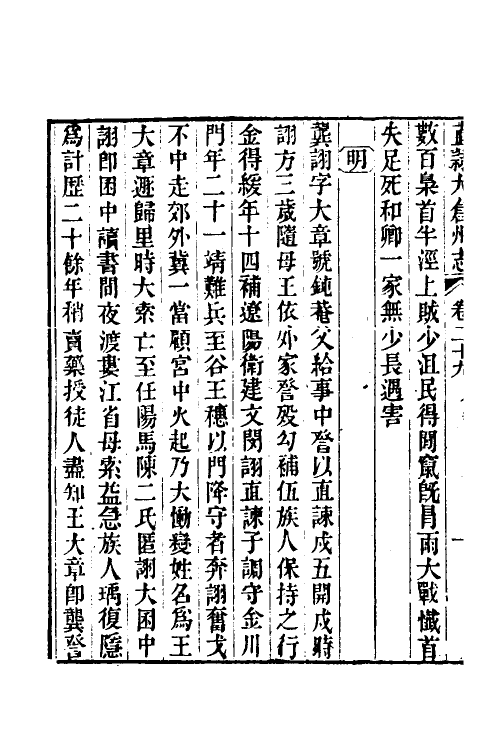 直隸太倉州志 卷二十九
數百梟首半涇上賊少沮民得間竄旣冒雨大戰懺首
失足死和卿一家無少長遇害
明
龔詡字大章號鈍菴父給事中詧以直諫戍五開戍時
詡方三歲隨母王依外家詧歿勾補伍族人保持之行
金得緩年十四補遼陽衛建文閔詡直諫子調守金川
門年二十一靖難兵至谷王穗以門降守者奔詡奮戈
不中走郊外冀一當顧宮中火起乃大慟變姓名爲王
大章遯歸里時大索亡至任陽馬陳二氏匿詡大囷中
詡卽囷中讀書間夜渡婁江省母索益急族人瑀復隱
爲計歷二十餘年稍賣藥授徒人盡知王大章卽龔詧